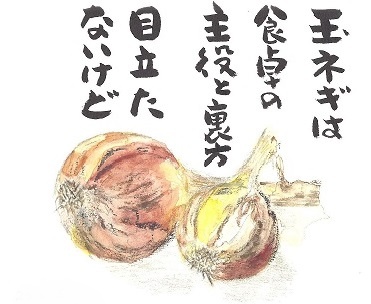 玉ネギは
食卓の
主役と裏方
目立た
ないけど